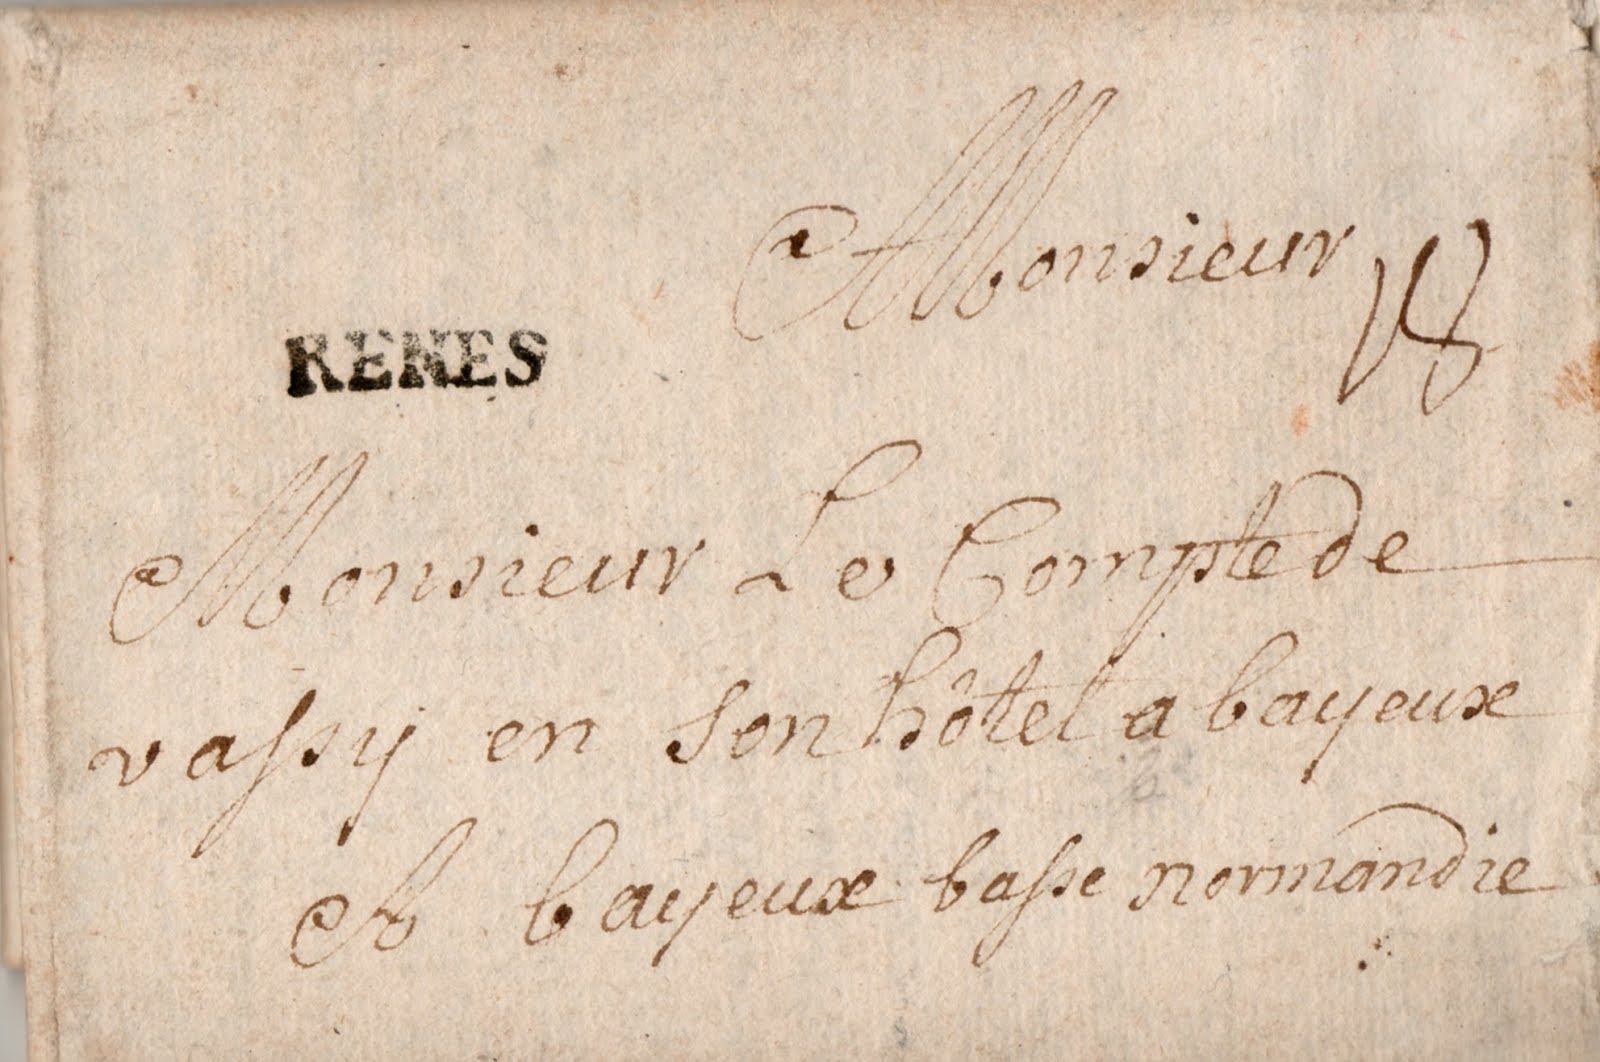 Monsieur 18
RENES
Monsieur Le Compte de
vassy en son hôtel a bayeux
A bayeux basse normandie